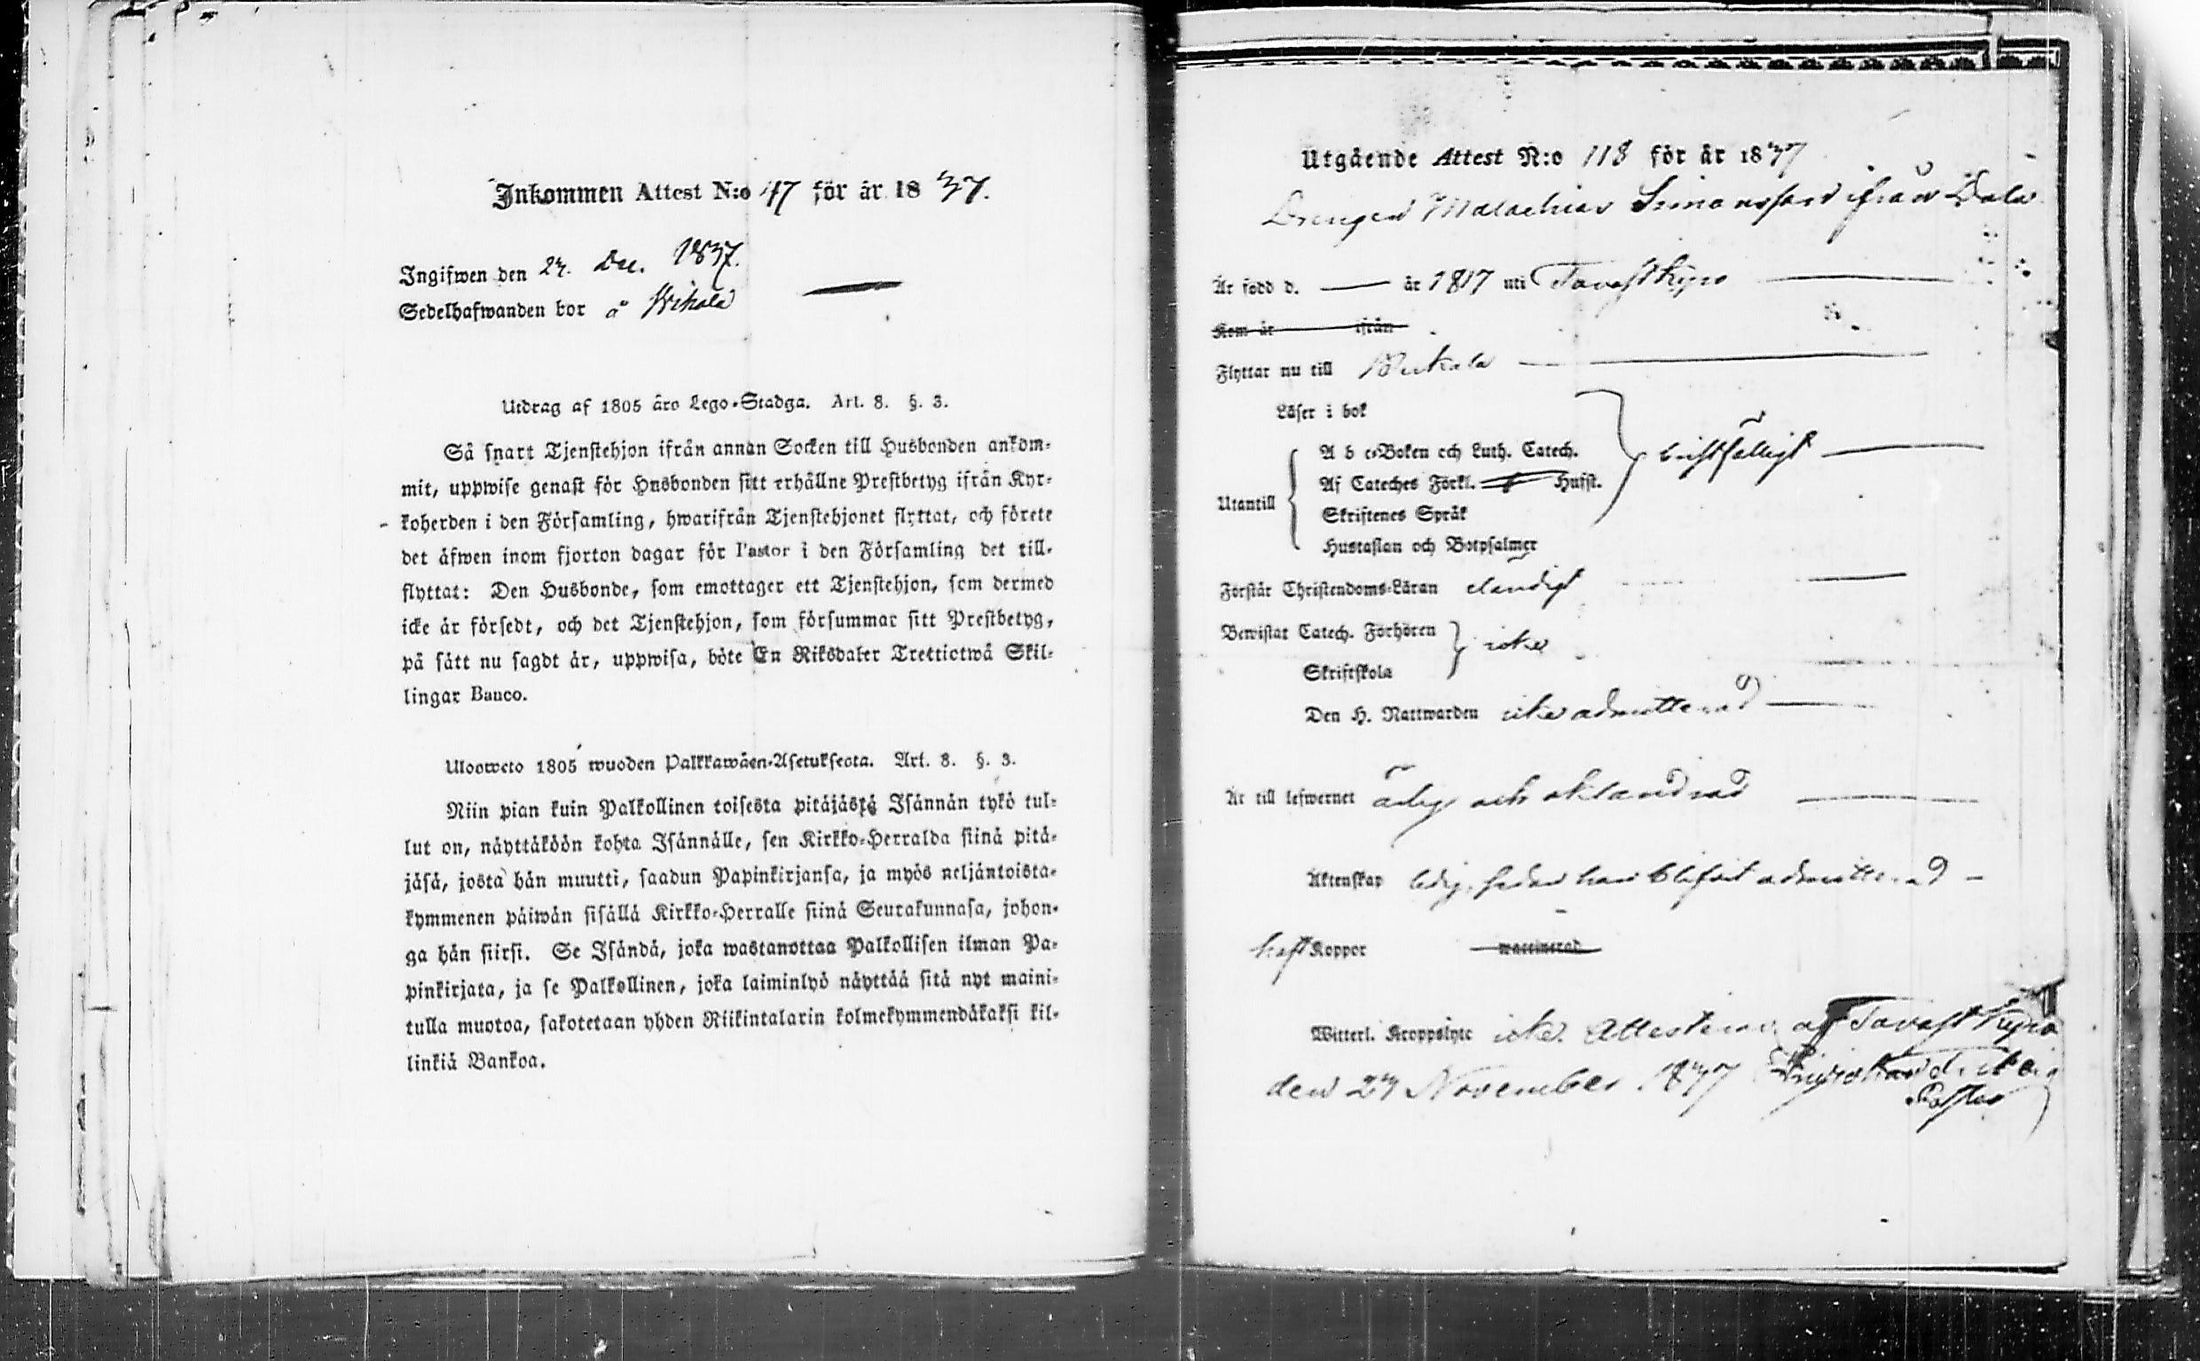 Inkommen Attest N:o 47 för år 1837.
Ingifwen den 27. Dec. 1837.
Sedelhafwanden bor å
Utdrag af 1805 års Lego-Stadga. Art. 8. §. 3.
Så snart Tjenstehjon ifrån annan Socken till Husbonden ankom-
mit, uppwise genast för Husbonden sitt erhållne Prestbetyg ifrån Kyr-
koherden i den Församling, hwarifrån Tjenstehjonet flyttat, och förete
det äfwen inom fjorton dagar för Pastor i den Församling det till-
flyttat: Den Husbonde, som emottager ett Tjenstehjon, som dermed
icke är försedt, och det Tjenstehjon, som försummar sitt Prestbetyg,
på sätt nu sagdt är, uppwisa, böte En Riksdaler Trettiotwå Skil-
lingar Banco.
Ulosweto 1805 wuoden Palkkawäen-Asetuksesta. Art. 8. §. 3.
Niin pian kuin Palkollinen toisesta pitäjästä Isännän tykö tul-
lut on, näyttäköön kohta Isännälle, sen Kirkko-Herralda siinä pitä-
jäsä, josta hän muutti, saadun Papinkirjansa, ja myös neljäntoista-
kymmenen päiwän sisällä Kirkko-Herralle siinä Seurakunnasa, johon-
ga hän siirsi. Se Isändä, joka wastanottaa Palkollisen ilman Pa-
pinkirjata, ja se Palkollinen, joka laiminlyö näyttää sitä nyt maini-
tulla muotoa, sakotetaan yhden Riikintalarin kolmekymmendäkaksi kil-
linkiä Bankoa.
Utgående Attest N:o 118 för år 1837
Drengen Malachias Simonsson ifrån Dala
Är född d. — år 1817 uti Tavastkyro
Kom år ifrån
Flyttar nu till
Läser i bok
A b c-Boken och Luth. Catech.
Af Cateches Förkl. Hufst.
Utantill
Skriftenes Språk
Hustaflan och Botpsalmer
bristfälligt
Förstår Christendoms-Läran eländigt
Bewistat Catech. Förhören
Skriftskola
icke
Den H. Nattwarden icke admitterad
Är till lefwernet ärlig och oklandrad
Äktenskap ledig, sedan han blifvit admitterad
haft Koppor waccinerad
Witterl. Kroppslyte icke. Attesterar af Tavastkyro
den 23 November 1837
Pastor